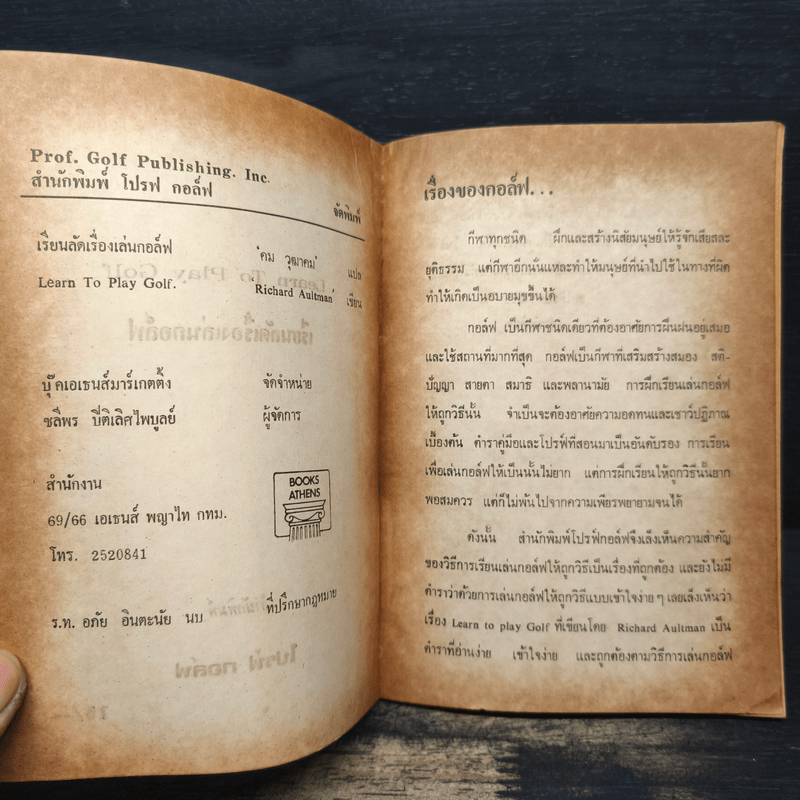 Prof. Golf Publishing. Inc.
สำนักพิมพ์ โปรฟ กอล์ฟ จัดพิมพ์
เรียนลัดเรื่องเล่นกอล์ฟ "คม วุฒาคม" แปล
Learn To Play Golf. Richard Aultman เขียน
บุ๊คเอเธนส์มาร์เกตติ้ง จัดจำหน่าย
ชลีพร ปิติเลิศไพบูลย์ ผู้จัดการ
สำนักงาน
BOOKS
ATHENS
69/66 เอเธนส์ พญาไท กทม.
โทร. 2520841
ร.ท. อภัย อินตะนัย นบ ที่ปรึกษากฎหมาย
เรื่องของกอล์ฟ...
กีฬาทุกชนิด ฝึกและสร้างนิสัยมนุษย์ให้รู้จักเสียสละ
ยุติธรรม แต่กีฬาอีกนั่นแหละทำให้มนุษย์ที่นำไปใช้ในทางที่ผิด
ทำให้เกิดเป็นอบายมุขขึ้นได้
กอล์ฟ เป็นกีฬาชนิดเดียวที่ต้องอาศัยการฝึนฝนอยู่เสมอ
และใช้สถานที่มากที่สุด กอล์ฟเป็นกีฬาที่เสริมสร้างสมอง สติ-
ปัญญา สายตา สมาธิ และพลานามัย การฝึกเรียนเล่นกอล์ฟ
ให้ถูกวิธีนั้น จำเป็นจะต้องอาศัยความอดทนและเชาว์ปฏิภาณ
เบื้องต้น ตำราคู่มือและโปรฟ์ที่สอนมาเป็นอันดับรอง การเรียน
เพื่อเล่นกอล์ฟให้เป็นนั้นไม่ยาก แต่การฝึกเรียนให้ถูกวิธีนั้นยาก
พอสมควร แต่ก็ไม่พ้นไปจากความเพียรพยายามจนได้
ดังนั้น สำนักพิมพ์โปรฟ์กอล์ฟจึงเล็งเห็นความสำคัญ
ของวิธีการเรียนเล่นกอล์ฟให้ถูกวิธีเป็นเรื่องที่ถูกต้อง และยังไม่มี
ตำราว่าด้วยการเล่นกอล์ฟให้ถูกวิธีแบบเข้าใจง่าย ๆ เลยเล็งเห็นว่า
เรื่อง Learn to play Golf ที่เขียนโดย Richard Aultman เป็น
ตำราที่อ่านง่าย เข้าใจง่าย และถูกต้องตามวิธีการเล่นกอล์ฟ